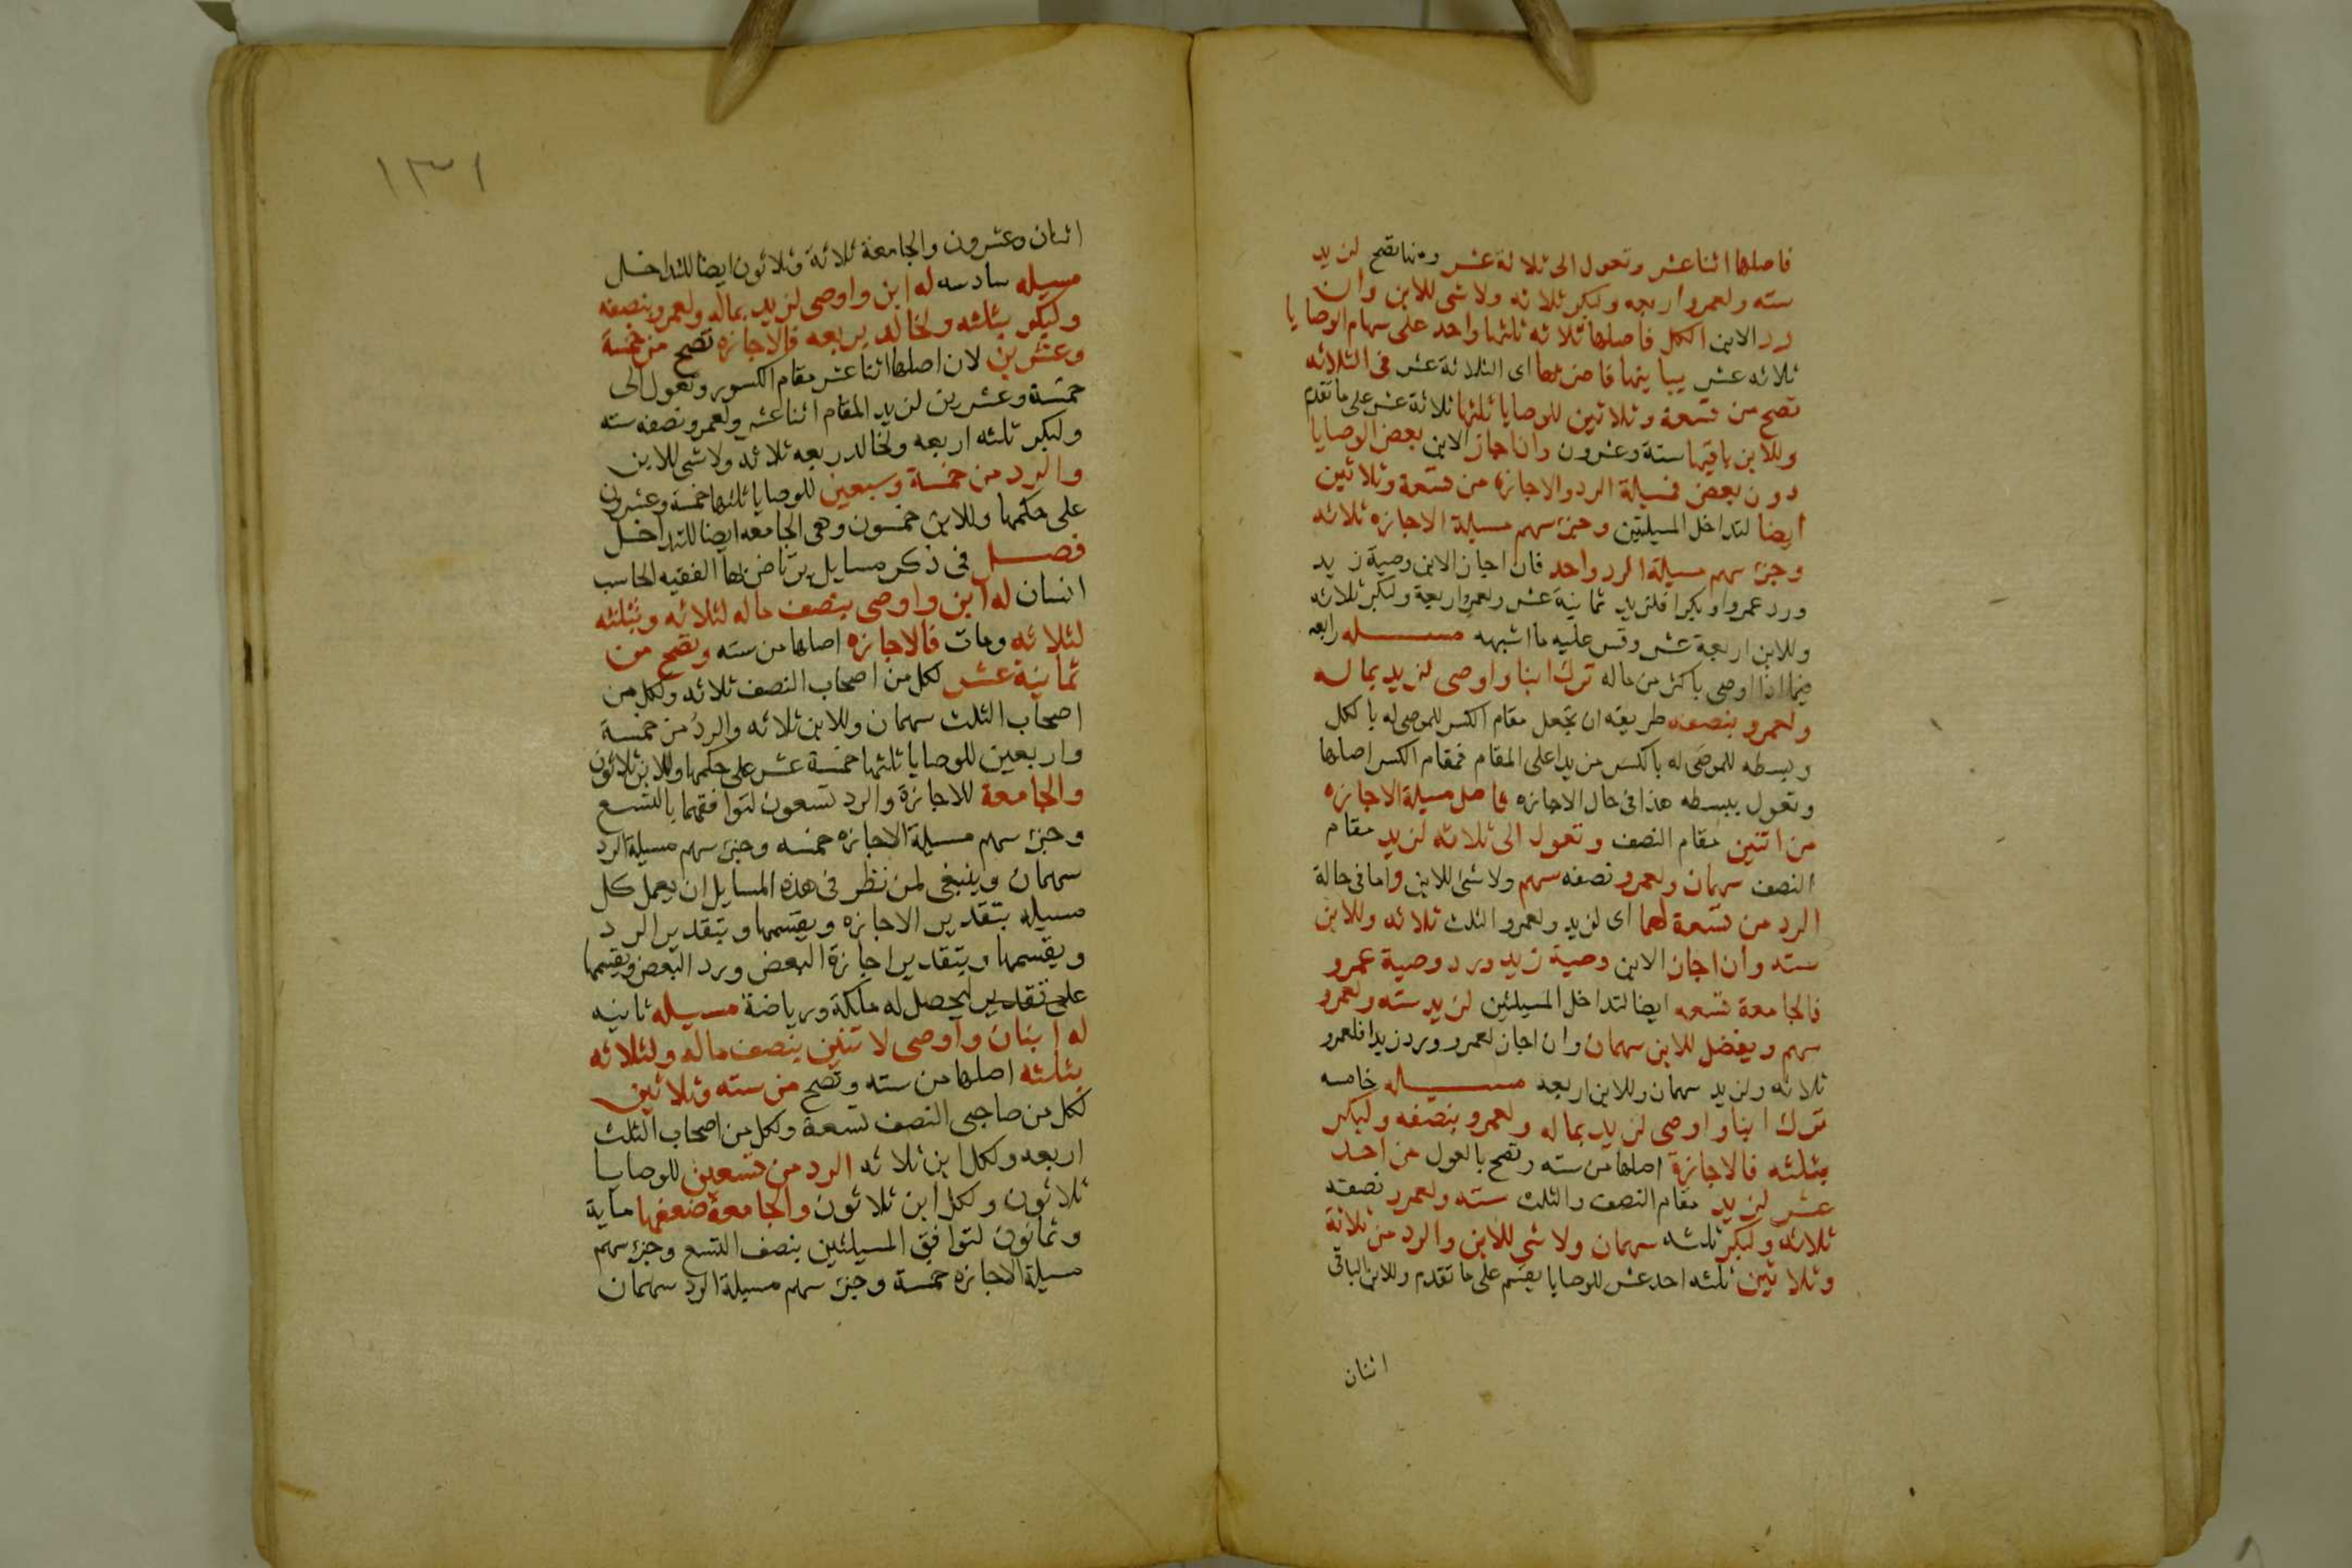 فاصلها اثنا عشر وتعول الى ثلاثة عشر ومنها تصح لزيد
سته ولعمرو اربعه ولبكر ثلاثه ولا شى للابن وان
رد الابن الكل فاصلها ثلاثه ثلثها واحد على سهام الوصايا
ثلاثه عشر يباينها فاضربها اى الثلاثة عشر فى الثلاثه
تصح من تسعة وثلاثين للوصايا ثلثها ثلاثة عشر على ما تقدم
وللابن باقيها ستة وعشرون وان اجاز الابن بعض الوصايا
دون بعض فمسيلة الرد والاجازه من تسعة وثلاثين
ايضا لتداخل المسيلتين وجزء سهم مسيلة الاجازه ثلاثه
وجزء سهم مسيلة الرد واحد فان اجاز الابن وصية زيد
ورد عمروا وبكرا فلزيد ثمانية عشر ولعمرو اربعة ولبكر ثلاثه
وللابن اربعة عشر وقس عليه ما اشبهه مسيله رابعه
فيما اذا اوصى باكثر من ماله ترك ابنا واوصى لزيد بماله
ولعمرو بنصفه طريقه ان تجعل مقام الكسر للموصى له بالكل
وبسطه للموصى له بالكسر مزيدا على المقام فمقام الكسر اصلها
وتعول ببسطه هذا فى حال الاجازه فاصل مسيلة الاجازه
من اثنين مقام النصف وتعول الى ثلاثه لزيد مقام
النصف سهمان ولعمرو نصفه سهم ولا شى للابن واما فى حالة
الرد من تسعة لهما اى لزيد ولعمرو الثلث ثلاثه وللابن
سته وان اجاز الابن وصية زيد ورد وصية عمرو
فالجامعة تسعه ايضا لتداخل المسيلتين لزيد سته ولعمرو
سهم ويفضل للابن سهمان وان اجاز لعمرو ورد زيدا فلعمرو
ثلاثه ولزيد سهمان وللابن اربعه مسيله خامسه
ترك ابنا واوصى لزيد بماله ولعمرو بنصفه ولبكر
بثلثه فالاجازة اصلها من سته وتصح بالعول من احد
عشر لزيد مقام النصف والثلث سته ولعمرو نصفه
ثلاثه ولبكر ثلثه سهمان ولا شى للابن والرد من ثلاثة
وثلاثين ثلثه احد عشر للوصايا يقسم على ما تقدم وللابن الباقى
اثنان
١٣١
اثنان وعشرون والجامعة ثلاثة وثلاثون ايضا للتداخل
مسيله سادسه له ابن واوصى لزيد بماله ولعمرو بنصفه
ولبكر بثلثه ولخالد بربعه فالاجازه تصح من خمسة
وعشرين لان اصلها اثنا عشر مقام الكسور وتعول الى
خمسة وعشرين لزيد المقام اثنا عشر ولعمرو نصفه سته
ولبكر ثلثه اربعه ولخالد ربعه ثلاثه ولا شى للابن
والرد من خمسة وسبعين للوصايا ثلثها خمسة وعشرون
على حكمها وللابن خمسون وهى الجامعه ايضا للتداخل
فصل فى ذكر مسايل يرتاض بها الفقيه الحاسب
انسان له ابن واوصى بنصف ماله لثلاثه وبثلثه
لثلاثه ومات فالاجازه اصلها من سته وتصح من
ثمانية عشر لكل من اصحاب النصف ثلاثه ولكل من
اصحاب الثلث سهمان وللابن ثلاثه والرد من خمسة
واربعين للوصايا ثلثها خمسة عشر على حكمها وللابن ثلاثون
والجامعة للاجازة والرد تسعون لتوافقهما بالتسع
وجزء سهم مسيلة الاجازه خمسه وجزء سهم مسيلة الرد
سهمان وينبغى لمن نظر فى هذه المسايل ان يعمل كل
مسيله بتقدير الاجازه ويقسمها وبتقدير الرد
ويقسمها وبتقدير اجازة البعض ورد البعض ويقسمها
على تقدير ليحصل له ملكة ورياضة مسيله ثانيه
له ابنان واوصى لاثنين بنصف ماله ولثلاثه
بثلثه اصلها من سته وتصح من سته وثلاثين
لكل من صاحبى النصف تسعة ولكل من اصحاب الثلث
اربعه ولكل ابن ثلاثه الرد من تسعين للوصايا
ثلاثون ولكل ابن ثلاثون والجامعة ضعفها ماية
وثمانون لتوافق المسيلتين بنصف التسع وجزء سهم
مسيلة الاجازه خمسة وجزء سهم مسيلة الرد سهمان